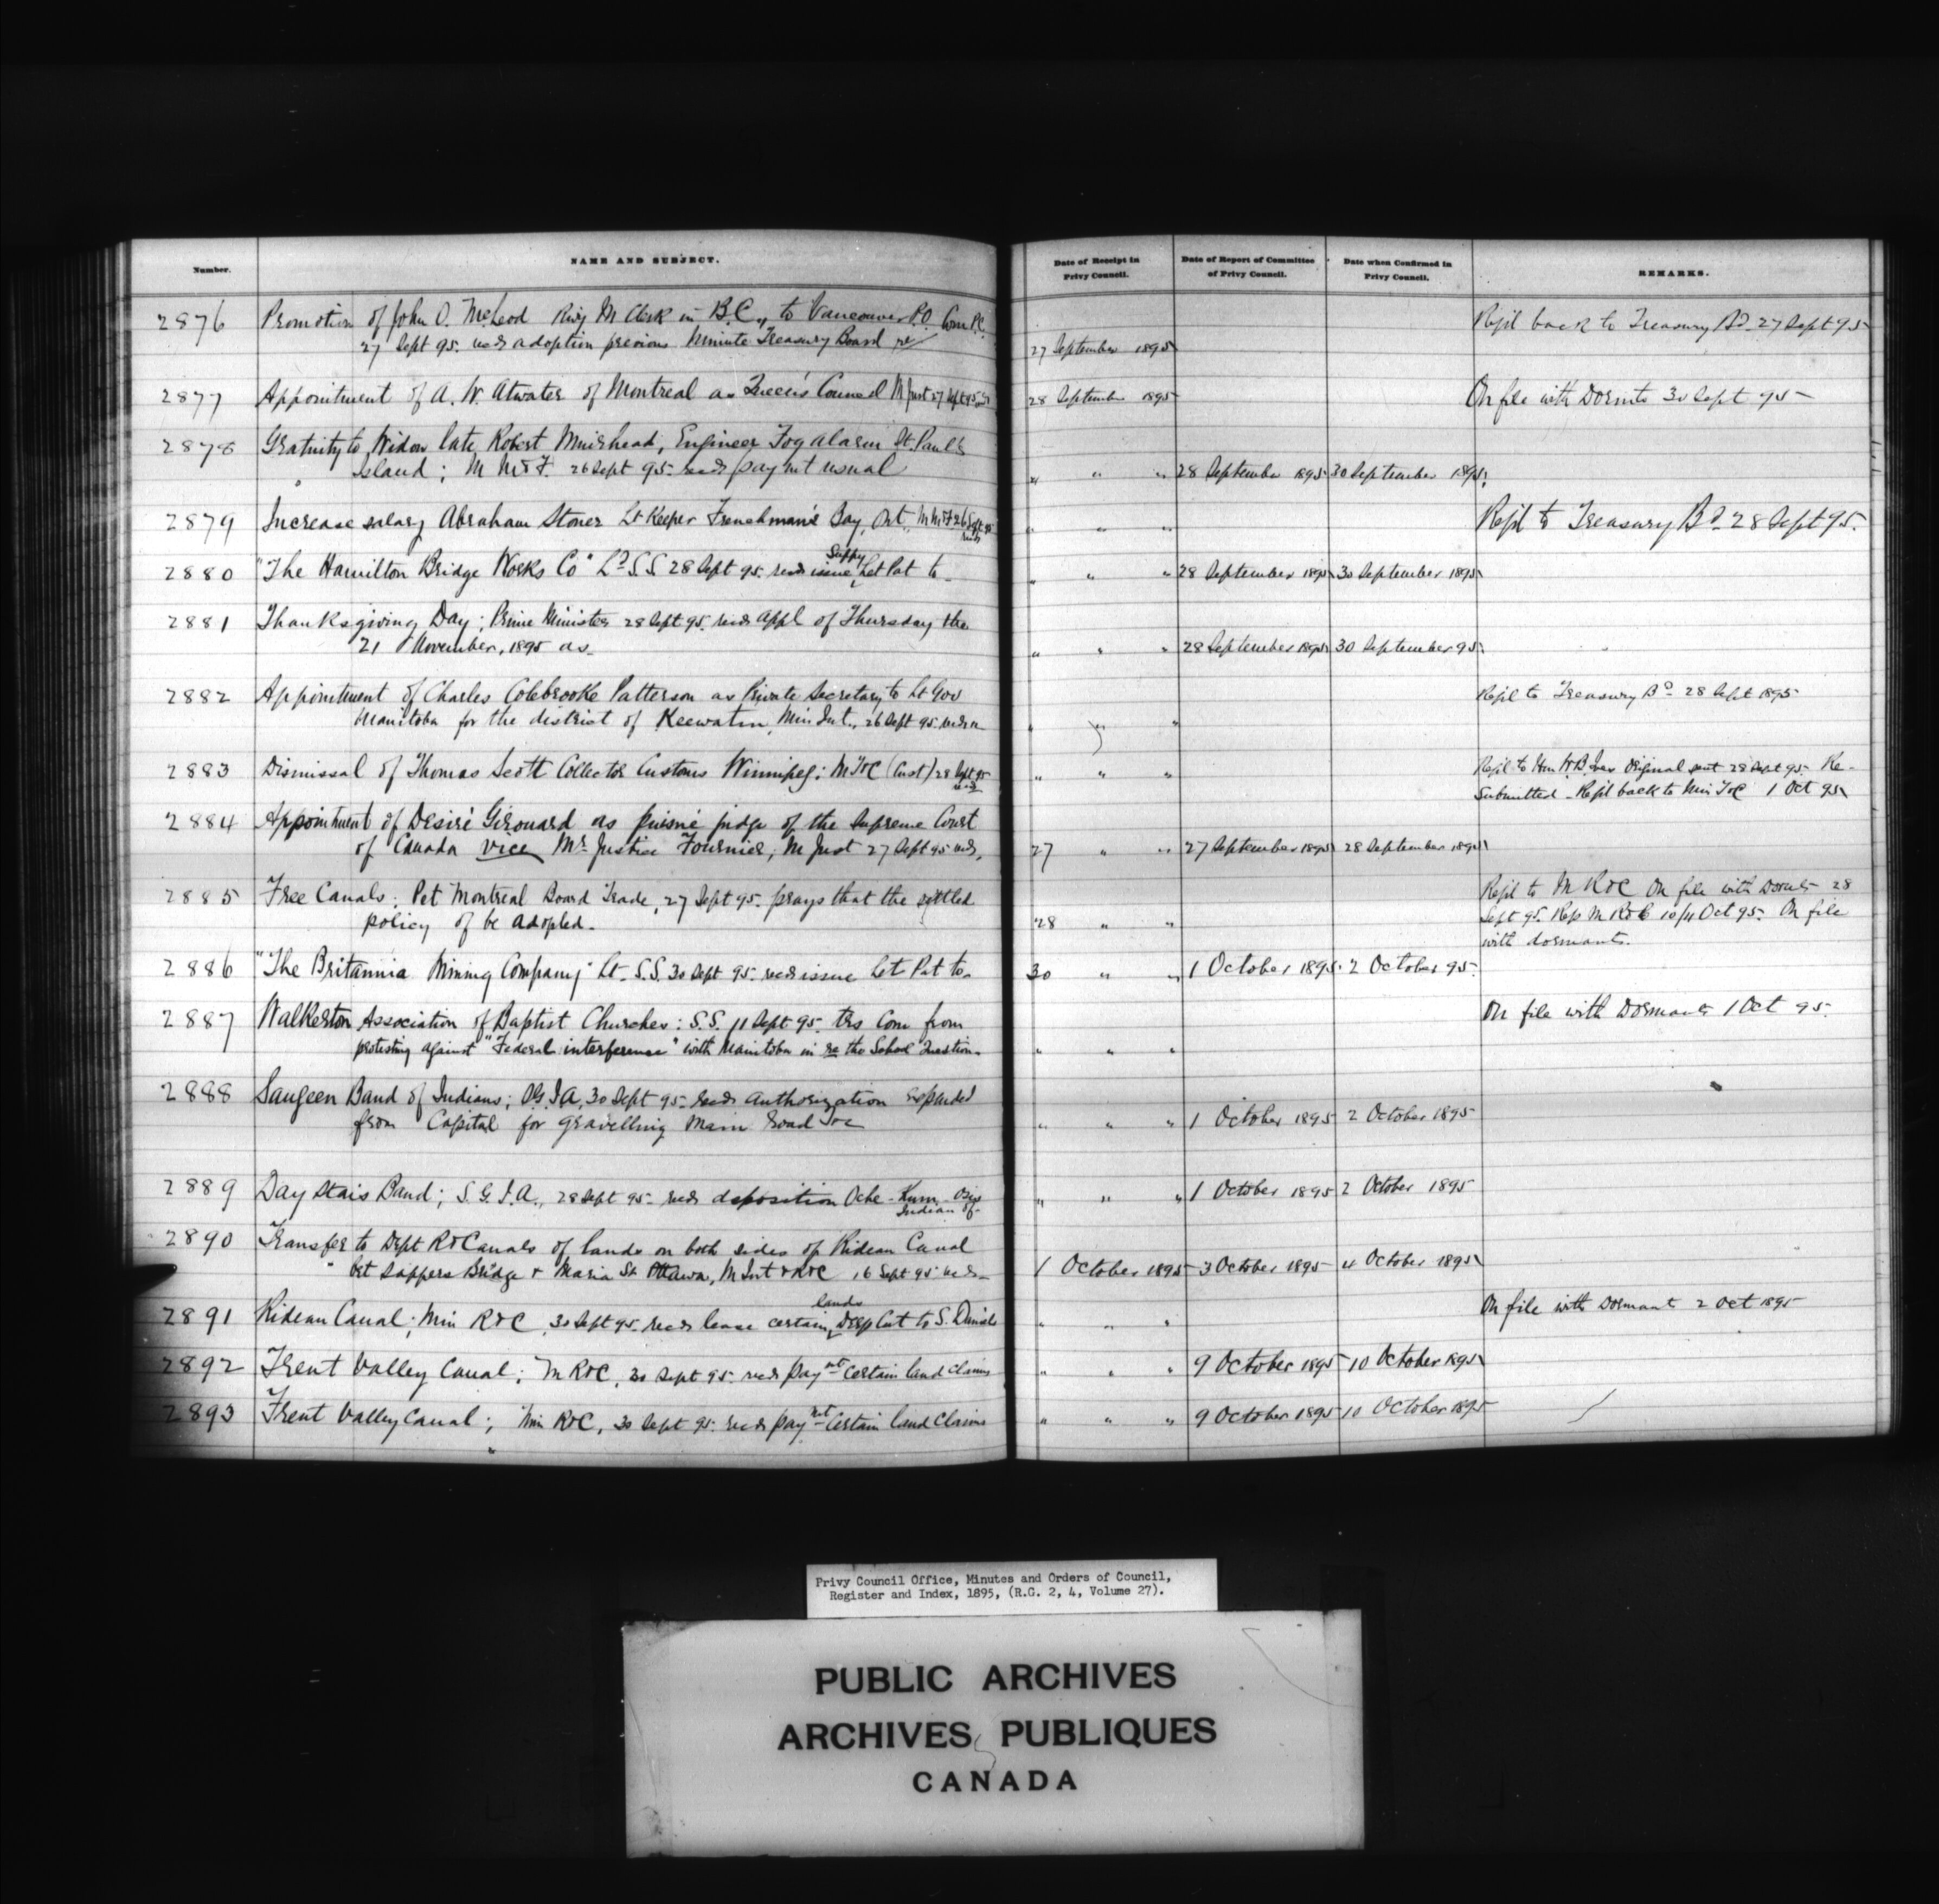 Number. NAME AND SUBJECT. Date of Receipt in Privy Council. Date of Report of Committee of Privy Council. Date when Confirmed in Privy Council. REMARKS.
2876 Promotion of John O. McLeod Rwy M Clerk in B.C., to Vancouver P.O. Com P.C. Refd back to Treasury Bd. 27 Sept 95
27 Sept 95. recds adoption previous Minute Treasury Board re 27 September 1895
2877 Appointment of A. W. Atwater of Montreal as Queen's Counsel M Just 27 Sept 95 28 September 1895 On file with Dormts 30 Sept 95
2878 Gratuity to Widow late Robert Muirhead, Engineer Fog alarm St. Pauls
Island; M M&F. 26 Sept 95 recds paymt usual " " " 28 September 1895 30 September 1895
2879 Increase salary Abraham Stoner Lt Keeper Frenchman's Bay, Ont, M M&F 26 Sept 95 recds " " " Refd to Treasury Bd 28 Sept 95.
2880 "The Hamilton Bridge Works Co" Ld S.S 28 Sept 95. recds issue Suppy Let Pat to " " " 28 September 1895 30 September 1895
2881 Thanksgiving Day; Prime Minister 28 Sept 95. recds appt of Thursday the
21 November, 1895 as " " " 28 September 1895 30 September 95
2882 Appointment of Charles Colebrooke Patterson as Private Secretary to Lt Gov Refd to Treasury Bd 28 Sept 1895
Manitoba for the district of Keewatin, Min Int., 26 Sept 95 recds " " "
2883 Dismissal of Thomas Scott Collector Customs Winnipeg; M T&C (Cust) 28 Sept 95 recds " " " Refd to Hon W.B. Ives Original sent 28 Sept 95. Re-
Submitted - Refd back to Min T&C 1 Oct 95
2884 Appointment of Desiré Girouard as puisné judge of the Supreme Court
of Canada vice Mr Justice Fournier, M Just 27 Sept 95 recds, 27 " " 27 September 1895 28 September 1895
2885 Free Canals; Pet Montreal Board Trade, 27 Sept 95. prays that the settled Refd to M R&C On file with Dormts 28
policy of be adopted. 28 " " Sept 95. Rep M R&C 10/14 Oct 95. On file
with dormants.
2886 "The Britannia Mining Company" Lt S.S. 30 Sept 95. recds issue Let Pat to 30 " " 1 October 1895 2 October 95.
2887 Walkerton Association of Baptist Churches: S.S. 11 Sept 95. trs Com from On file with Dormants 1 Oct 95.
protesting against "Federal interference" with Manitoba in re the School Question " " "
2888 Saugeen Band of Indians; 30 Sept 95. recds authorization expended
from Capital for gravelling Main road &c " " " 1 October 1895 2 October 1895
2889 Day Stars Band; S.G.I.A., 28 Sept 95. recds deposition Oche-Kum- Indian of " " " 1 October 1895 2 October 1895
2890 Transfer to Dept R&Canals of lands on both sides of Rideau Canal
bet Sappers Bridge & Maria St Ottawa, M Int & R&C 16 Sept 95 recds 1 October 1895 3 October 1895 4 October 1895
2891 Rideau Canal; Min R&C 30 Sept 95. recds lease certain lands Deep Cut to S. " " " On file with Dormant 2 Oct 1895
2892 Trent Valley Canal; M R&C, 30 Sept 95. recds paymt certain land claims " " " 9 October 1895 10 October 1895
2893 Trent Valley Canal; Min R&C, 30 Sept 95. recds paymt certain land claims " " " 9 October 1895 10 October 1895
Privy Council Office, Minutes and Orders of Council,
Register and Index, 1895, (R.G. 2, 4, Volume 27).
PUBLIC ARCHIVES
ARCHIVES PUBLIQUES
CANADA